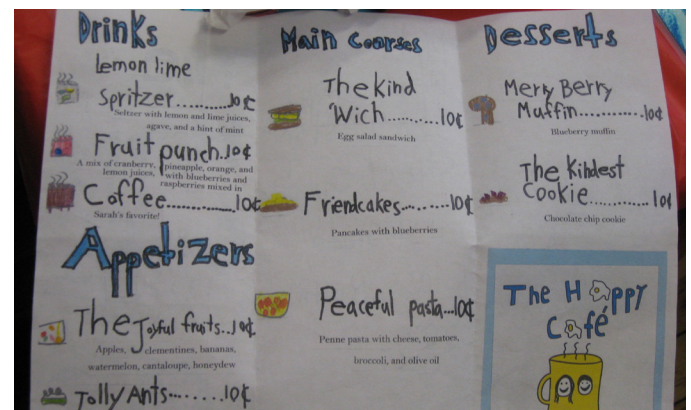 Drinks
Lemon lime
Spritzer..........10¢
Seltzer with lemon and lime juices,
agave, and a hint of mint
Fruit punch.10¢
A mix of cranberry, pineapple, orange, and
lemon juices, with blueberries and
raspberries mixed in
Coffee..............10¢
Sarah's favorite!
Appetizers
The Joyful fruits..10¢
Apples, clementines, bananas,
watermelon, cantaloupe, honeydew
Jolly Ants........10¢
Main Courses
The kind
Wich..........10¢
Egg salad sandwich
Friendcakes........10¢
Pancakes with blueberries
Peaceful pasta...10¢
Penne pasta with cheese, tomatoes,
broccoli, and olive oil
Desserts
Merry Berry
Muffin............10¢
Blueberry muffin
The Kindest
Cookie...........10¢
Chocolate chip cookie
The Happy
Café